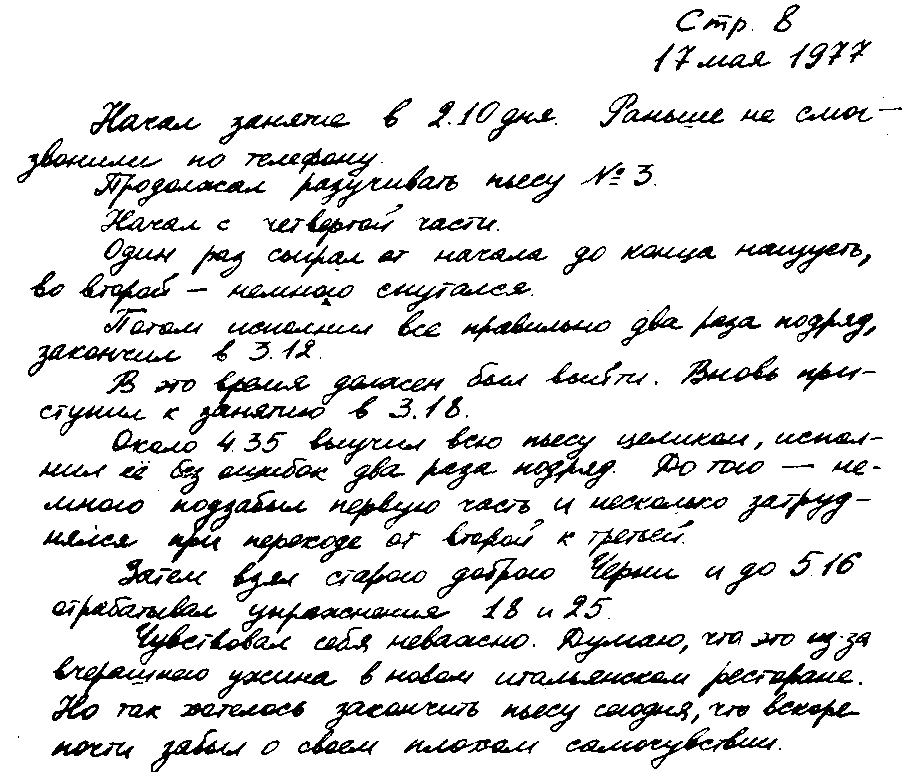 Стр. 8
17 мая 1977
Начал занятие в 2.10 дня. Раньше не смог —
звонили по телефону.
Продолжал разучивать пьесу № 3.
Начал с четвертой части.
Один раз сыграл от начала до конца наизусть,
во второй — немного спутался.
Потом исполнил все правильно два раза подряд,
закончил в 3.12.
В это время должен был выйти. Вновь при-
ступил к занятию в 3.18.
Около 4.35 выучил всю пьесу целиком, испол-
нил её без ошибок два раза подряд. До того — не-
много подзабыл первую часть и несколько затруд-
нялся при переходе от второй к третьей.
Затем взял старого доброго Черни и до 5.16
отрабатывал упражнения 18 и 25.
Чувствовал себя неважно. Думаю, что это из-за
вчерашнего ужина в новом итальянском ресторане.
Но так хотелось закончить пьесу сегодня, что вскоре
почти забыл о своем плохом самочувствии.